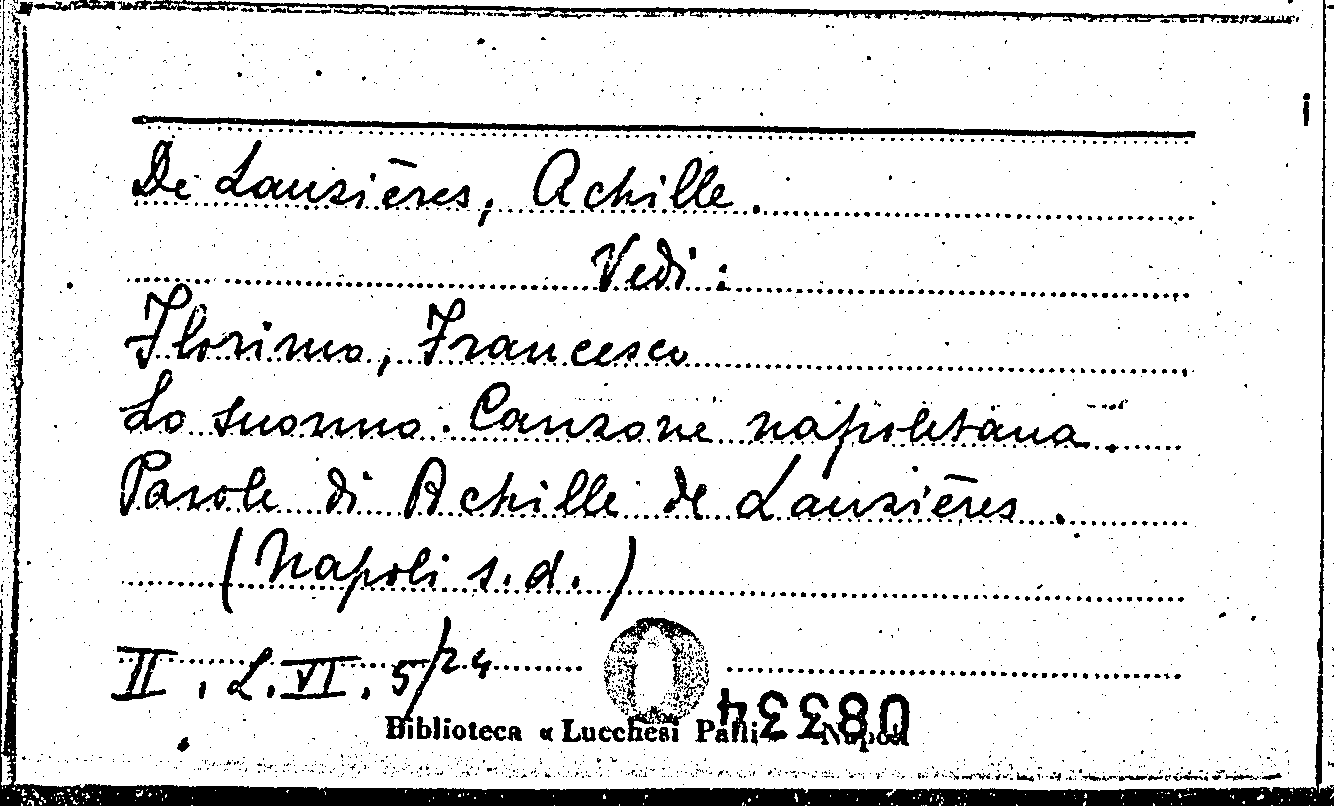 De Lauzières, Achille.
Vedi:
Florimo, Francesco
Lo suonno. Canzone napoletana.
Parole di Achille de Lauzières.
(Napoli s.d.)
II. L.VI. 5/24
08334
Biblioteca « Lucchesi Palli » Napoli